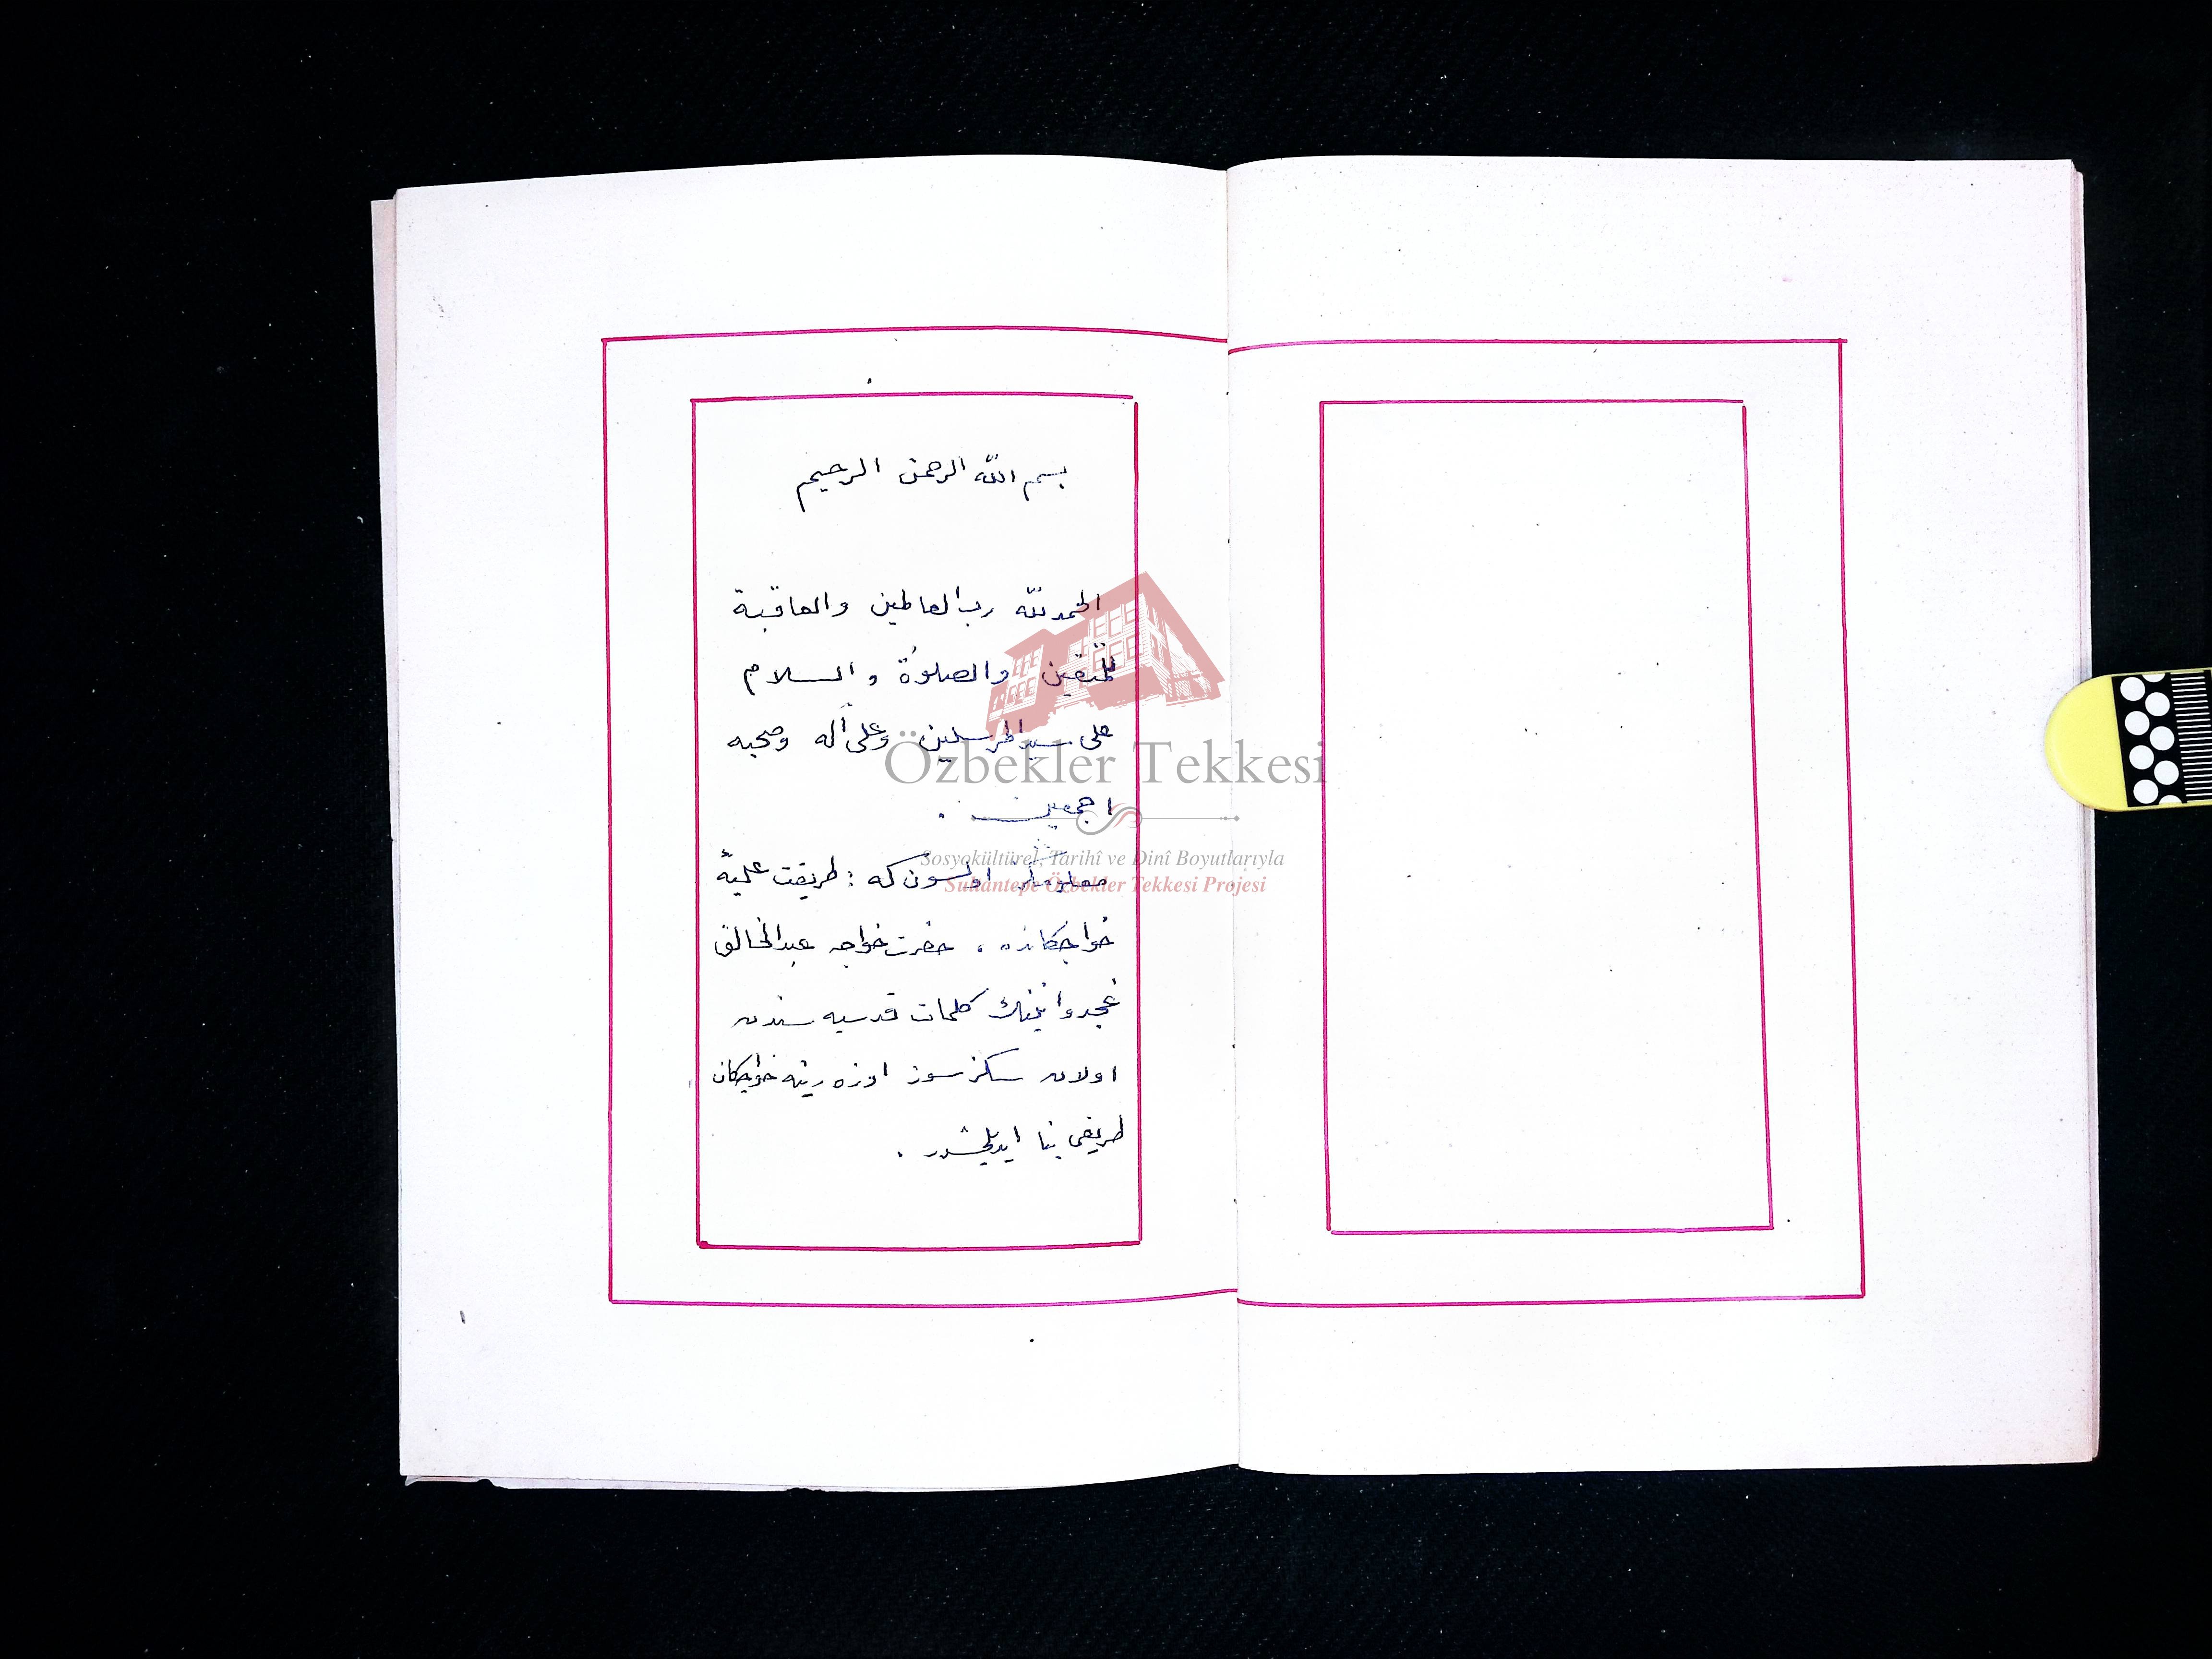 بسم الله الرحمن الرحيم
الحمد لله رب العالمين والعاقبة
للمتقين والصلوة والسلام
على سيد المرسلين وعلى آله وصحبه
اجمعين .
اولسون كه : طريقت عليهٔ
خواجكانده ، حضرت خواجه عبدالخالق
غجدوانينك كلمات قدسيه سندن
اولان سكز سوز اوزه رينه خواجكان
طريقى بنا ايديلمشدر .
Özbekler Tekkesi
Sosyokültürel, Tarihî ve Dinî Boyutlarıyla
Sultantepe Özbekler Tekkesi Projesi